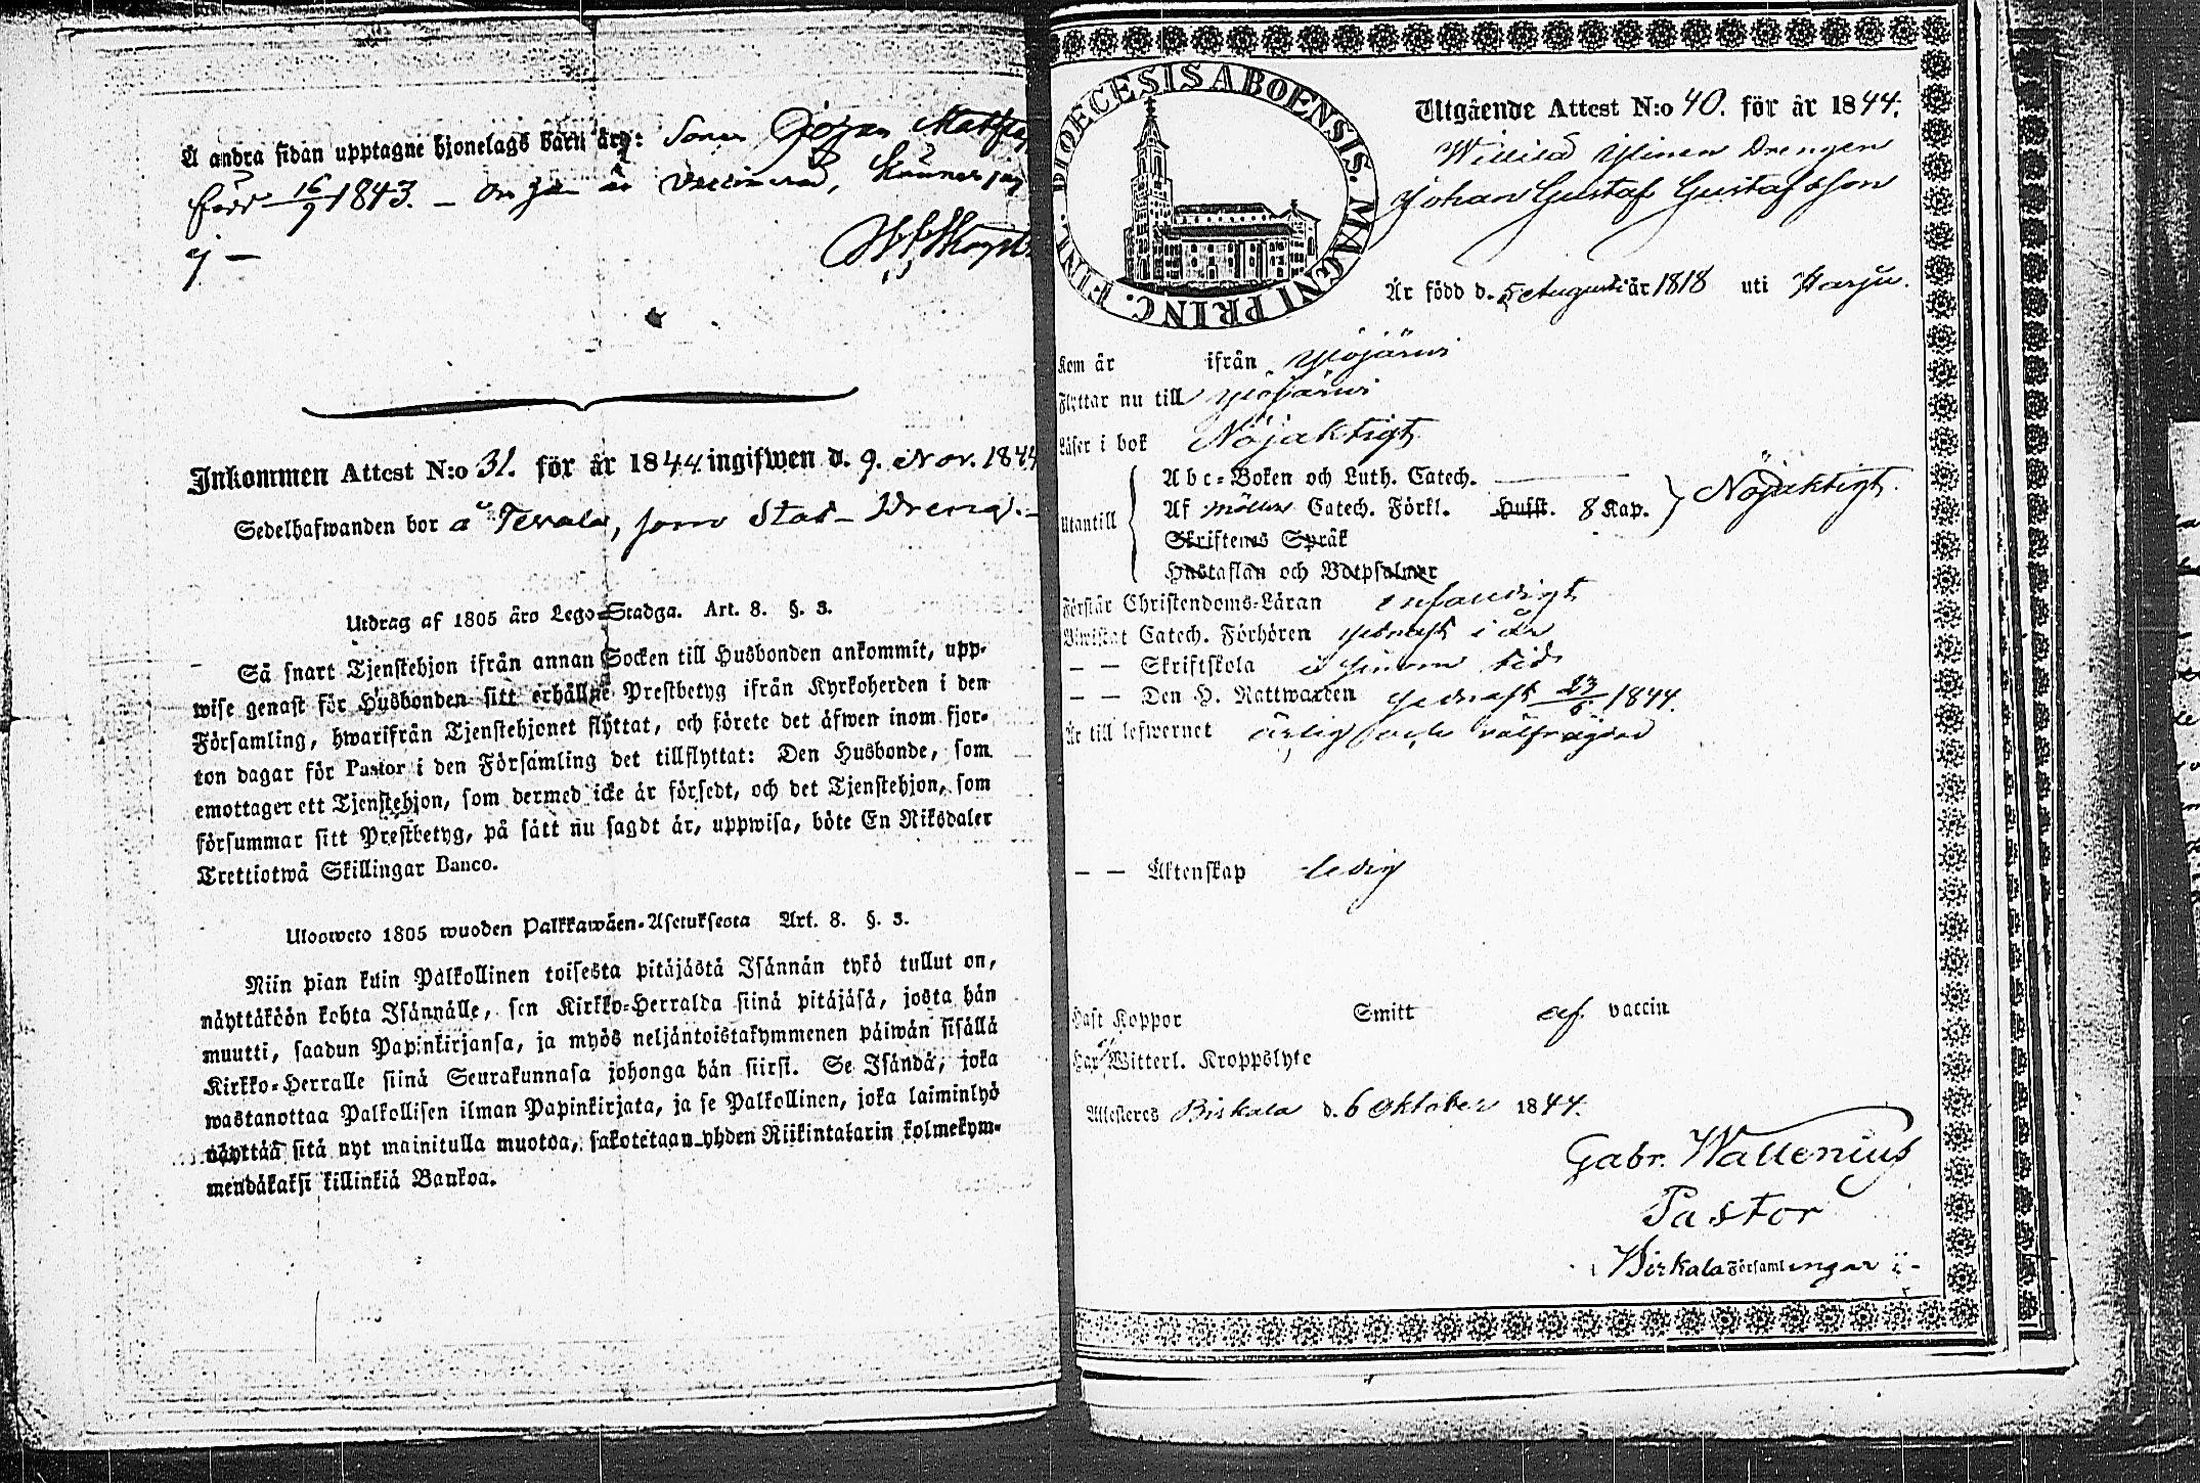 Å andra sidan upptagne hjonelags barn äro: Sonen Johan
född 16/9 1843. – Om han är vaccinerad, känner jag
ej –
Inkommen Attest N:o 31. för år 1844. ingifwen d. 9. Nov. 1844
Sedelhafwanden bor å Tevala, som Stads-Dreng. –
Utdrag af 1805 års Lego-Stadga. Art. 8. §. 3.
Så snart Tjenstehjon ifrån annan Socken till Husbonden ankommit, upp-
wise genast för Husbonden sitt erhållne Prestbetyg ifrån Kyrkoherden i den
Församling, hwarifrån Tjenstehjonet flyttat, och förete det äfwen inom fjor-
ton dagar för Pastor i den Församling det tillflyttat: Den Husbonde, som
emottager ett Tjenstehjon, som dermed icke är försedt, och det Tjenstehjon, som
försummar sitt Prestbetyg, på sätt nu sagdt är, uppwisa, böte En Riksdaler
Trettiotwå Skillingar Banco.
Ulosweto 1805 wuoden Palkkawäen-Asetuksesta Art. 8. §. 3.
Niin pian kuin Palkollinen toisesta pitäjästä Isännän tykö tullut on,
näyttäköön kohta Isännälle, sen Kirkko-Herralda siinä pitäjäsä, josta hän
muutti, saadun Papinkirjansa, ja myös neljäntoistakymmenen päiwän sisällä
Kirkko-Herralle siinä Seurakunnasa johonga hän siirsi. Se Isändä, joka
wastanottaa Palkollisen ilman Papinkirjata, ja se Palkollinen, joka laiminlyö
näyttää sitä nyt mainitulla muotoa, sakotetaan yhden Riikintalarin kolmekym-
mendäkaksi killinkiä Bankoa.
DIOECESIS ABOENSIS. MAGNI PRINC. FINL.
Utgående Attest N:o 40. för år 1844.
Drengen
Johan Gustaf Gustafsson
Är född d. 5 Augusti år 1818 uti Harju.
Kom år ifrån Ylöjärwi
Flyttar nu till Ylöjärwi
Läser i bok Nöjaktigt
Utantill
Abc-Boken och Luth. Catech.
Af Möllers Catech. Förkl. Hufst. 8 Kap. Nöjaktigt.
Skriftenes Språk
Hustaflan och Botpsalmer
Förstår Christendoms-Läran enfaldigt
Biwistat Catech. Förhören sednast i år
– – Skriftskola i sinom tid
– – Den H. Nattwarden sednast 23/6 1844.
Är till lefwernet ärlig och välfrägdad
– – Äktenskap ledig
Haft Koppor Smitt af vaccin
Har ej Witterl. Kroppslyte
Attesteres Birkala d. 6 Oktober 1844.
Gabr. Wallenius
Pastor
i Birkala Församlingar